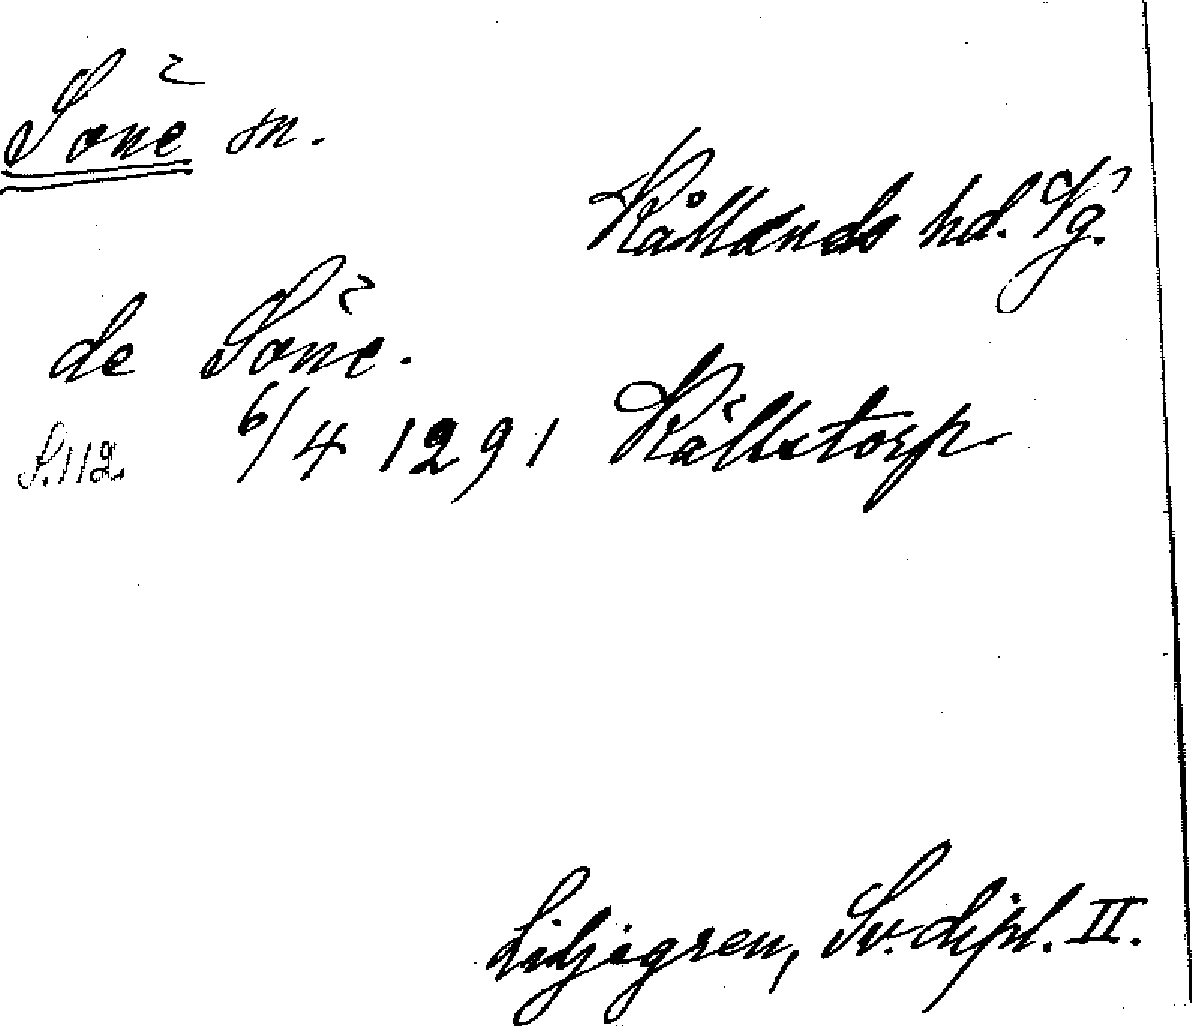 Sone m.
Kållands hd. Vg.
de Sone.
S.112. 6/4 1291 Kållstorp
Liljegren, Sv. dipl. II.